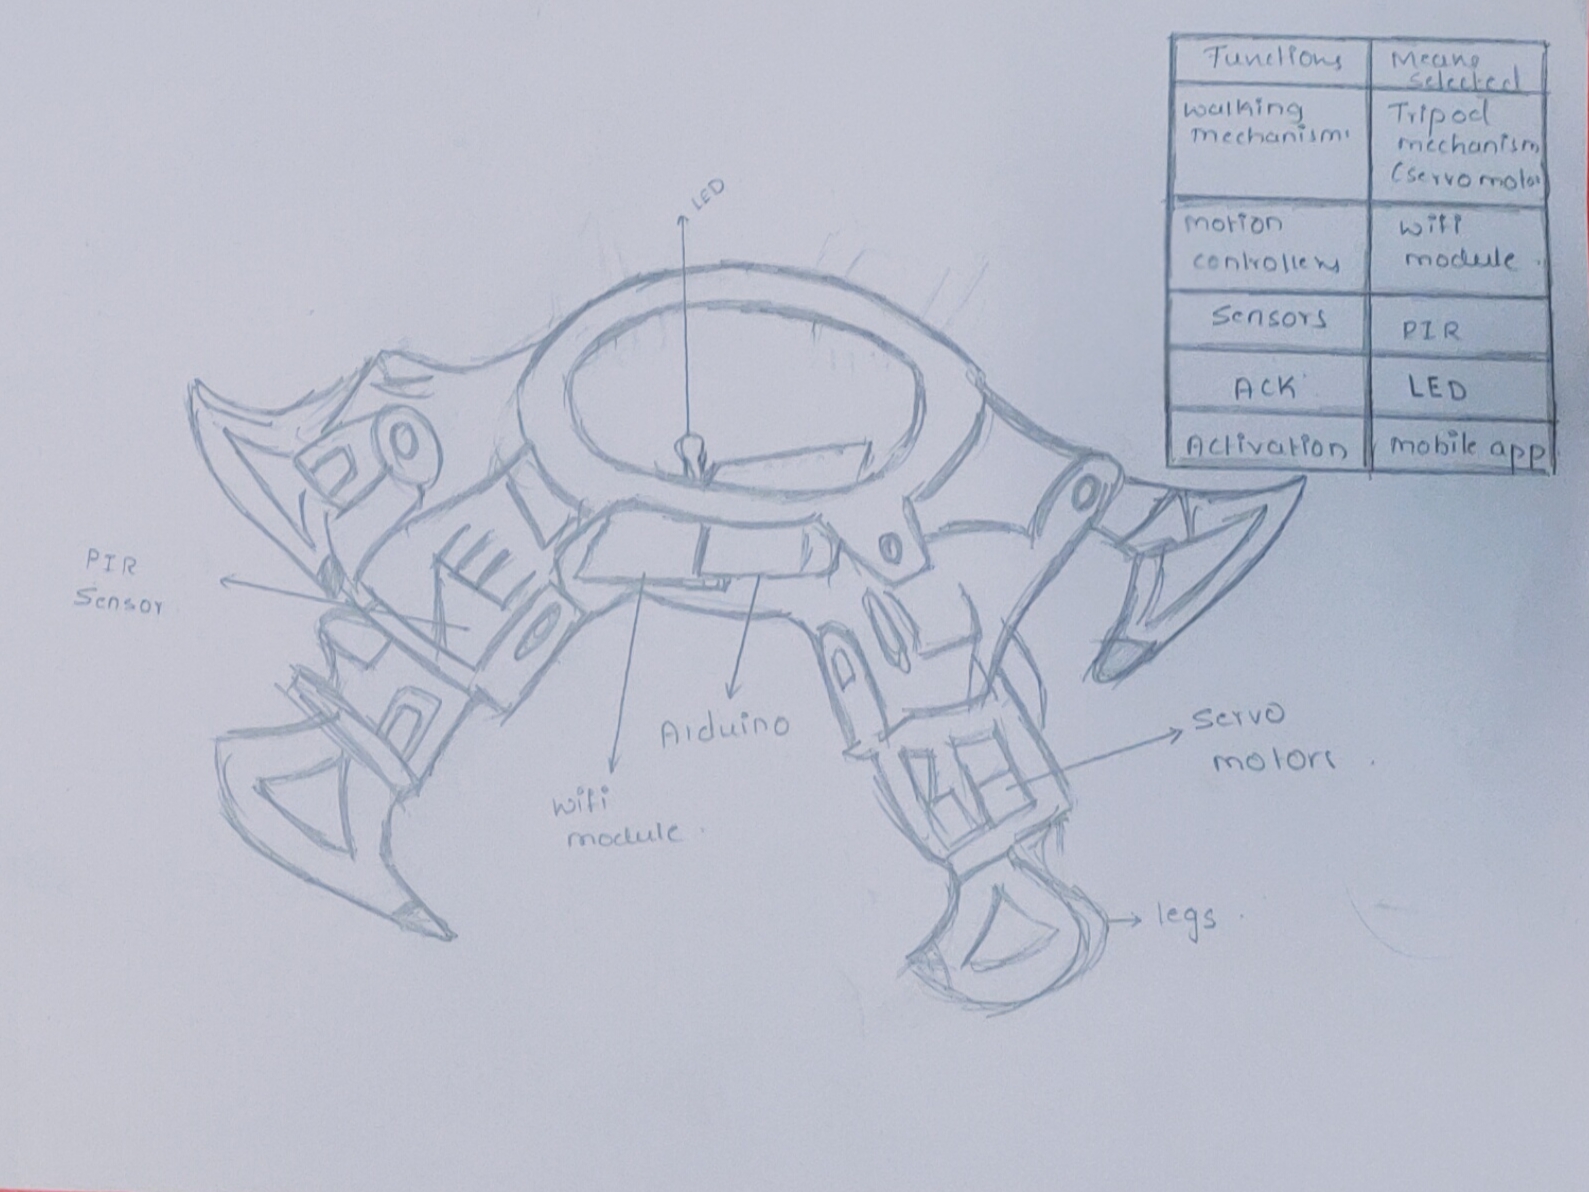 Functions
Means
selected
walking
mechanism
Tripod
mechanism
(servo motor
motion
controllers
wifi
module.
Sensors
PIR
ACK
LED
Activation
mobile app
LED
PIR
Sensor
Arduino
wifi
module.
servo
motors
legs.